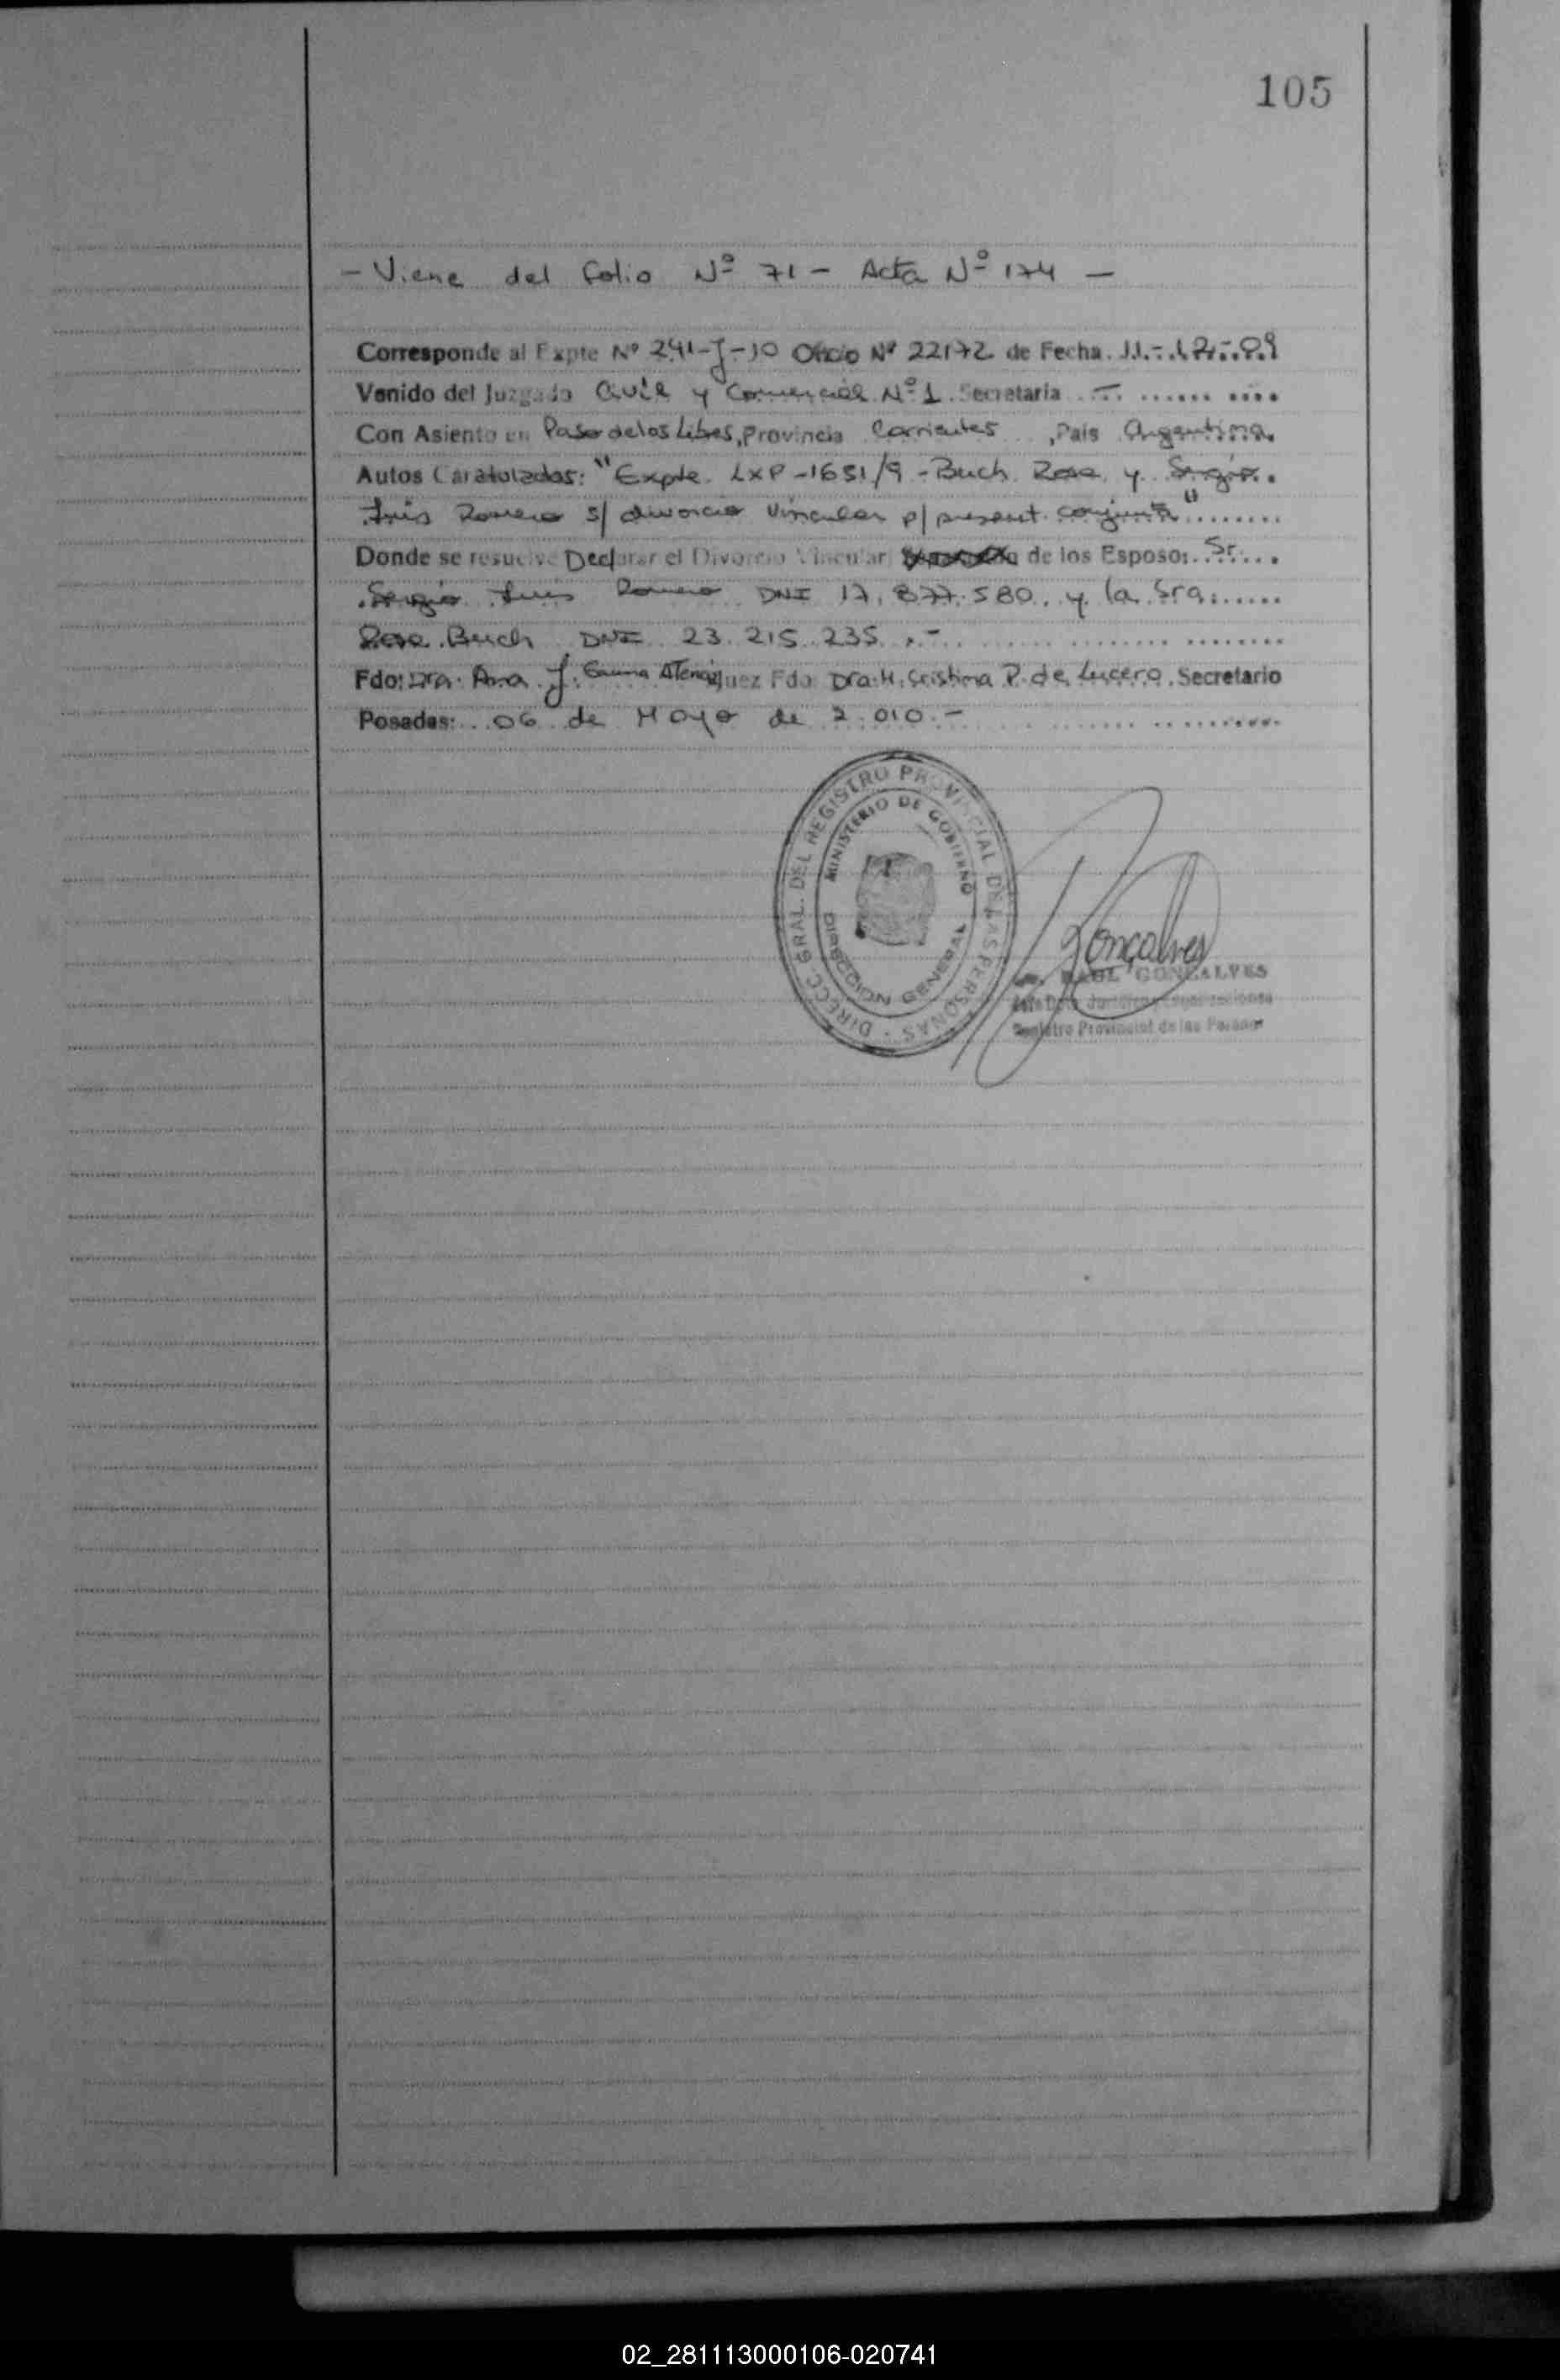 105
- Viene del folio Nº 71 - Acta Nº 174 -
Corresponde al Expte Nº 241-J-10 Oficio Nº 22172 de Fecha 11-12-09
Venido del Juzgado Civil y Comercial Nº 1 Secretaria -
Con Asiento en Paso de los Libres, Provincia Corrientes, Pais Argentina
Autos Caratulados: "Expte. LXP-1651/9 - Buch Rosa y Sergio
Luis Romero s/ divorcio Vincular p/ present. conjunta"
Donde se resuelve Declarar el Divorcio Vincular de los Esposos Sr.
Sergio Luis Romero DNI 17.877.580 y la Sra.
Rosa Buch DNI 23.215.235.-
Fdo: Dra. Ana J. Fdo Dra. M. Cristina P. de Lucero. Secretario
Posadas: 06 de Mayo de 2.010.-
DIRECC. GRAL. DEL REGISTRO PROVINCIAL DE LAS PERSONAS
MINISTERIO DE GOBIERNO
DIRECCION GENERAL
Gonçalves
RAUL GONCALVES
Registro Provincial de las Personas
02_281113000106-020741